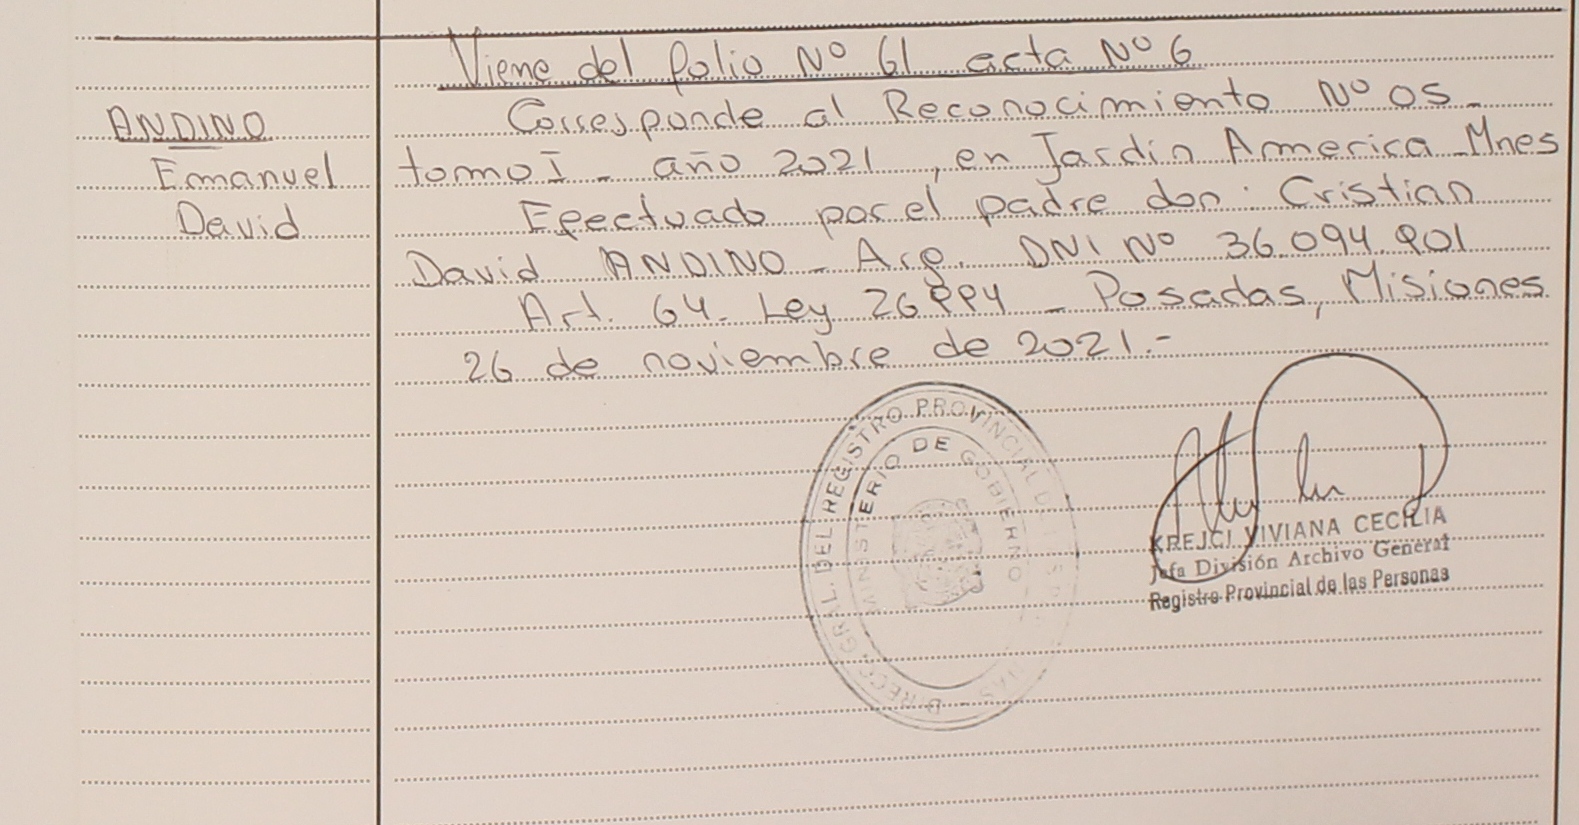 Viene del folio Nº 61 acta Nº 6
ANDINO
Emanuel
David
Corresponde al Reconocimiento Nº 05 -
tomo I - año 2021, en Jardin America - Mnes
Efectuado por el padre don: Cristian
David ANDINO - Arg. DNI Nº 36.094.901
Art. 64. Ley 26994 - Posadas, Misiones
26 de noviembre de 2021.-
GRAL. DEL REGISTRO PROVINCIAL DE
MINISTERIO DE GOBIERNO
KREJCI VIVIANA CECILIA
Jefa División Archivo General
Registro Provincial de las Personas